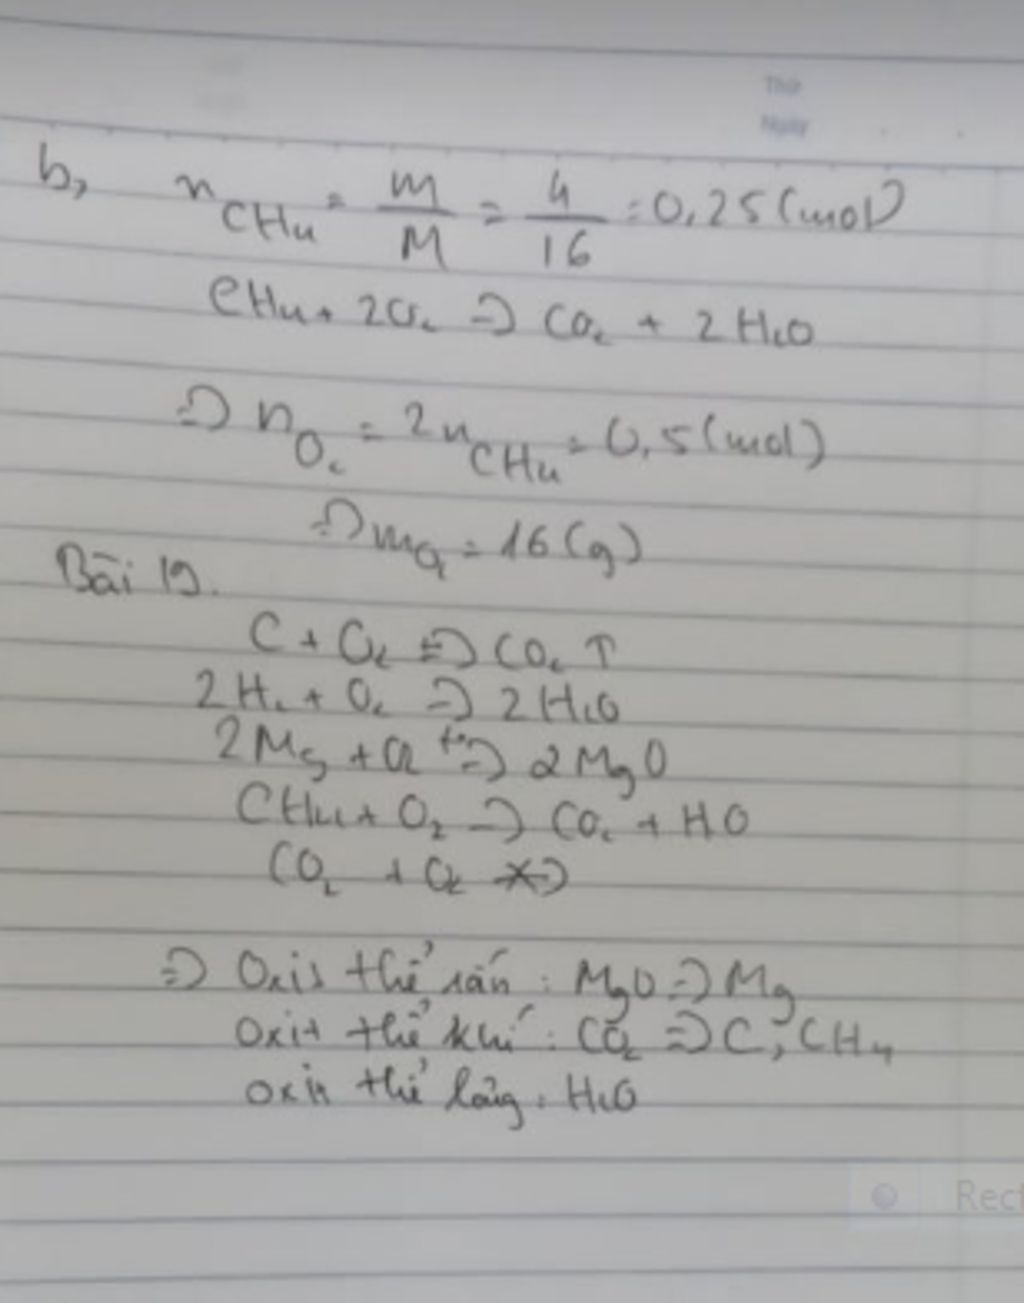 Thứ
Ngày
b, n_CH4 = m/M = 4/16 = 0,25 (mol)
CH4 + 2O2 => CO2 + 2H2O
=> n_O2 = 2n_CH4 = 0,5 (mol)
=> m_O2 = 16 (g)
Bài 19.
C + O2 => CO2 ↑
2H2 + O2 => 2H2O
2Mg + O2 t°=> 2MgO
CH4 + O2 => CO2 + HO
CO2 + O2 ≠>
=> Oxis thể rắn : MgO => Mg
oxit thể khí : CO2 => C, CH4
oxit thể lỏng : H2O
Rect